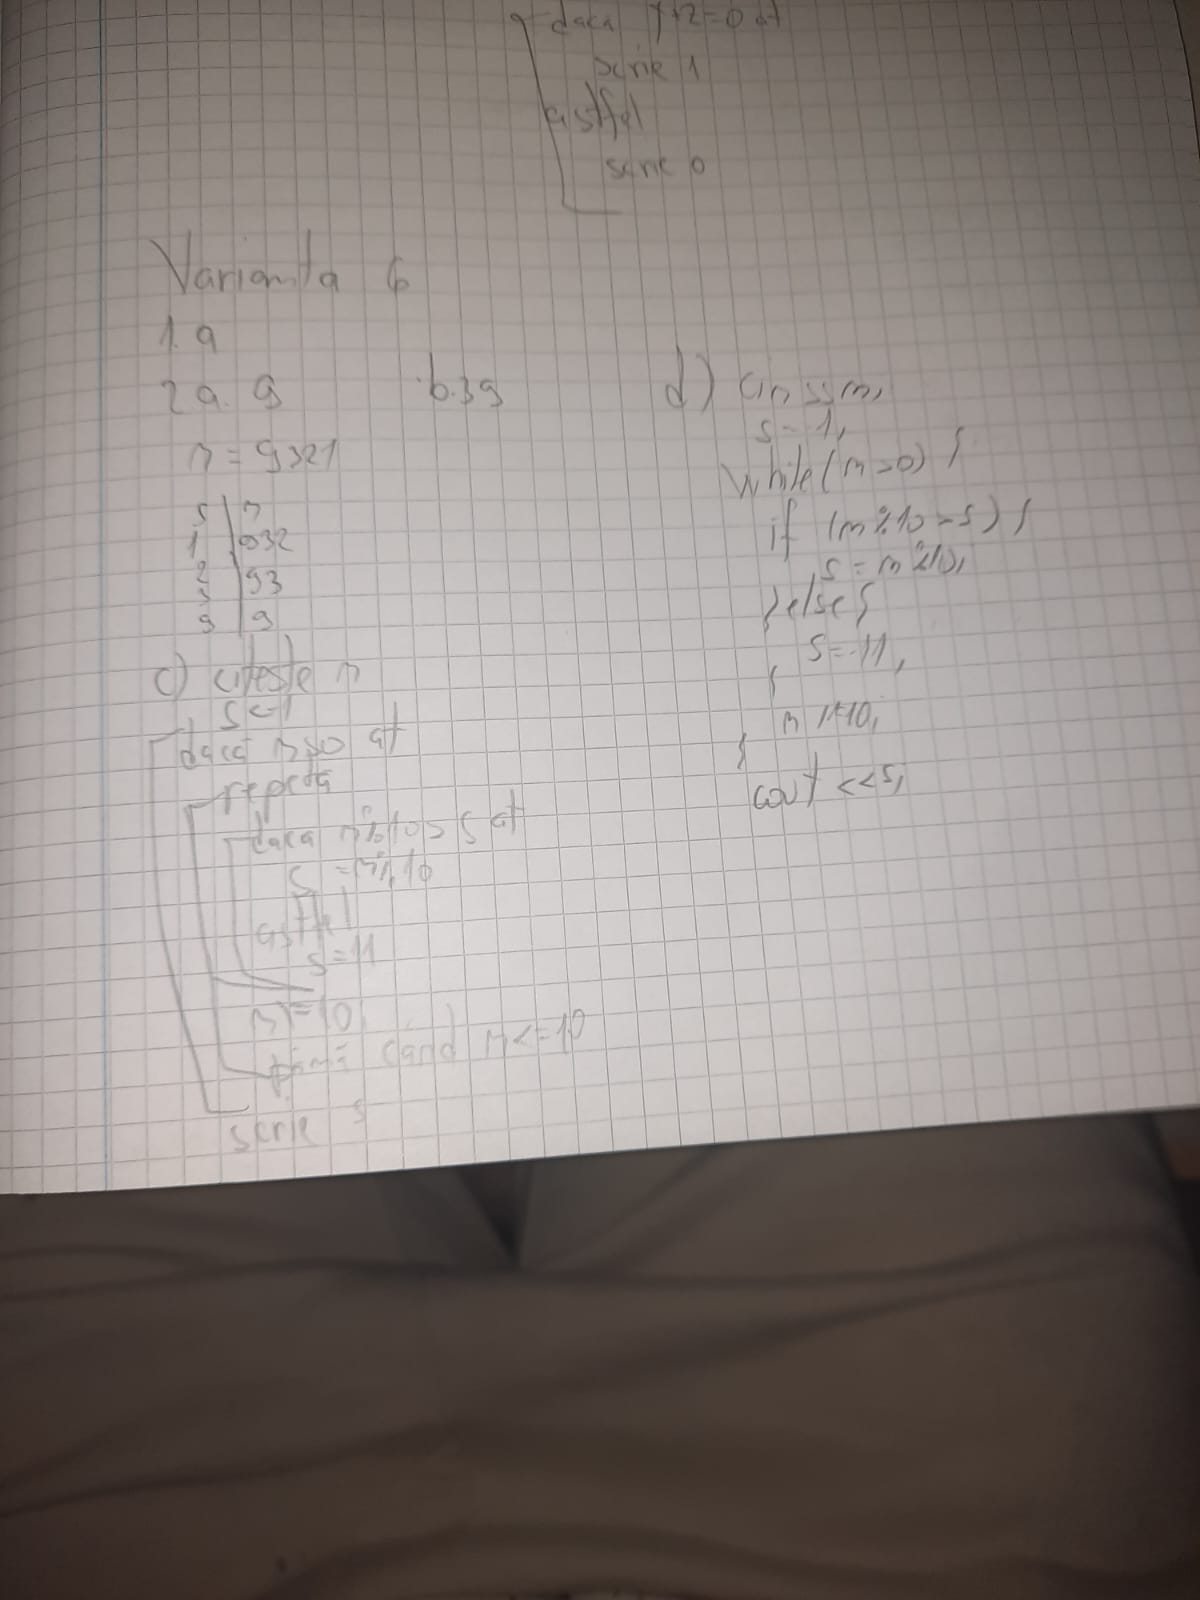 daca y+2=0 at
scrie 1
astfel
scrie 0
Varianta 6
1. a
2 a. 9
b. 39
n = 9321
s | n
1 | 932
2 | 93
3
9 | 9
c) citeste n
s<-1
daca n>0 at
repeta
daca n%10>s at
s = n%10
astfel
s=11
n/=10
pana cand n<=10
scrie s
d) cin>>n;
s=1;
while(n>0) {
if (n%10>s) {
s = n%10;
}else{
s=11;
}
n/=10;
}
cout <<s;